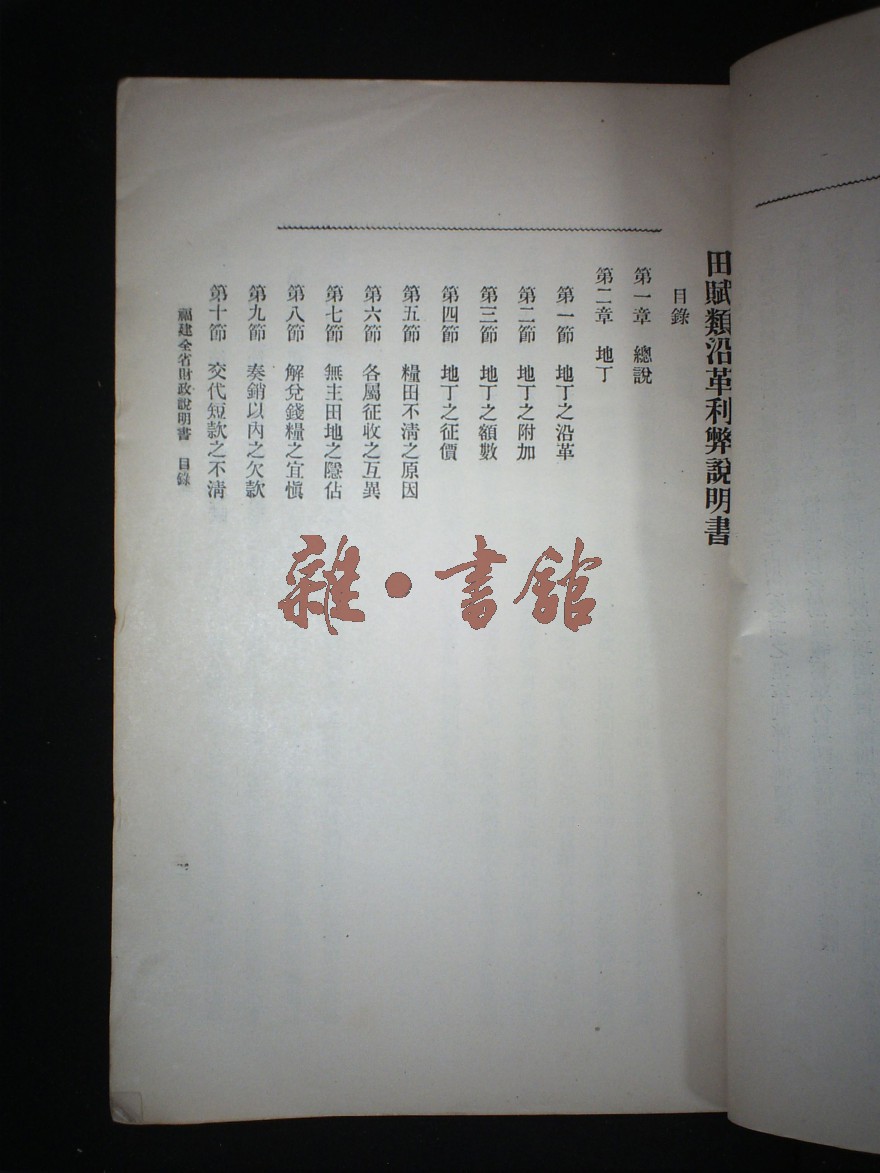 田賦類沿革利弊說明書
目錄
第一章 總說
第二章 地丁
第一節 地丁之沿革
第二節 地丁之附加
第三節 地丁之額數
第四節 地丁之征價
第五節 糧田不清之原因
第六節 各屬征收之互異
第七節 無主田地之隱估
第八節 解兌錢糧之宜愼
第九節 奏銷以內之欠款
第十節 交代短款之不淸
福建全省財政說明書 目錄
一
雜·書館